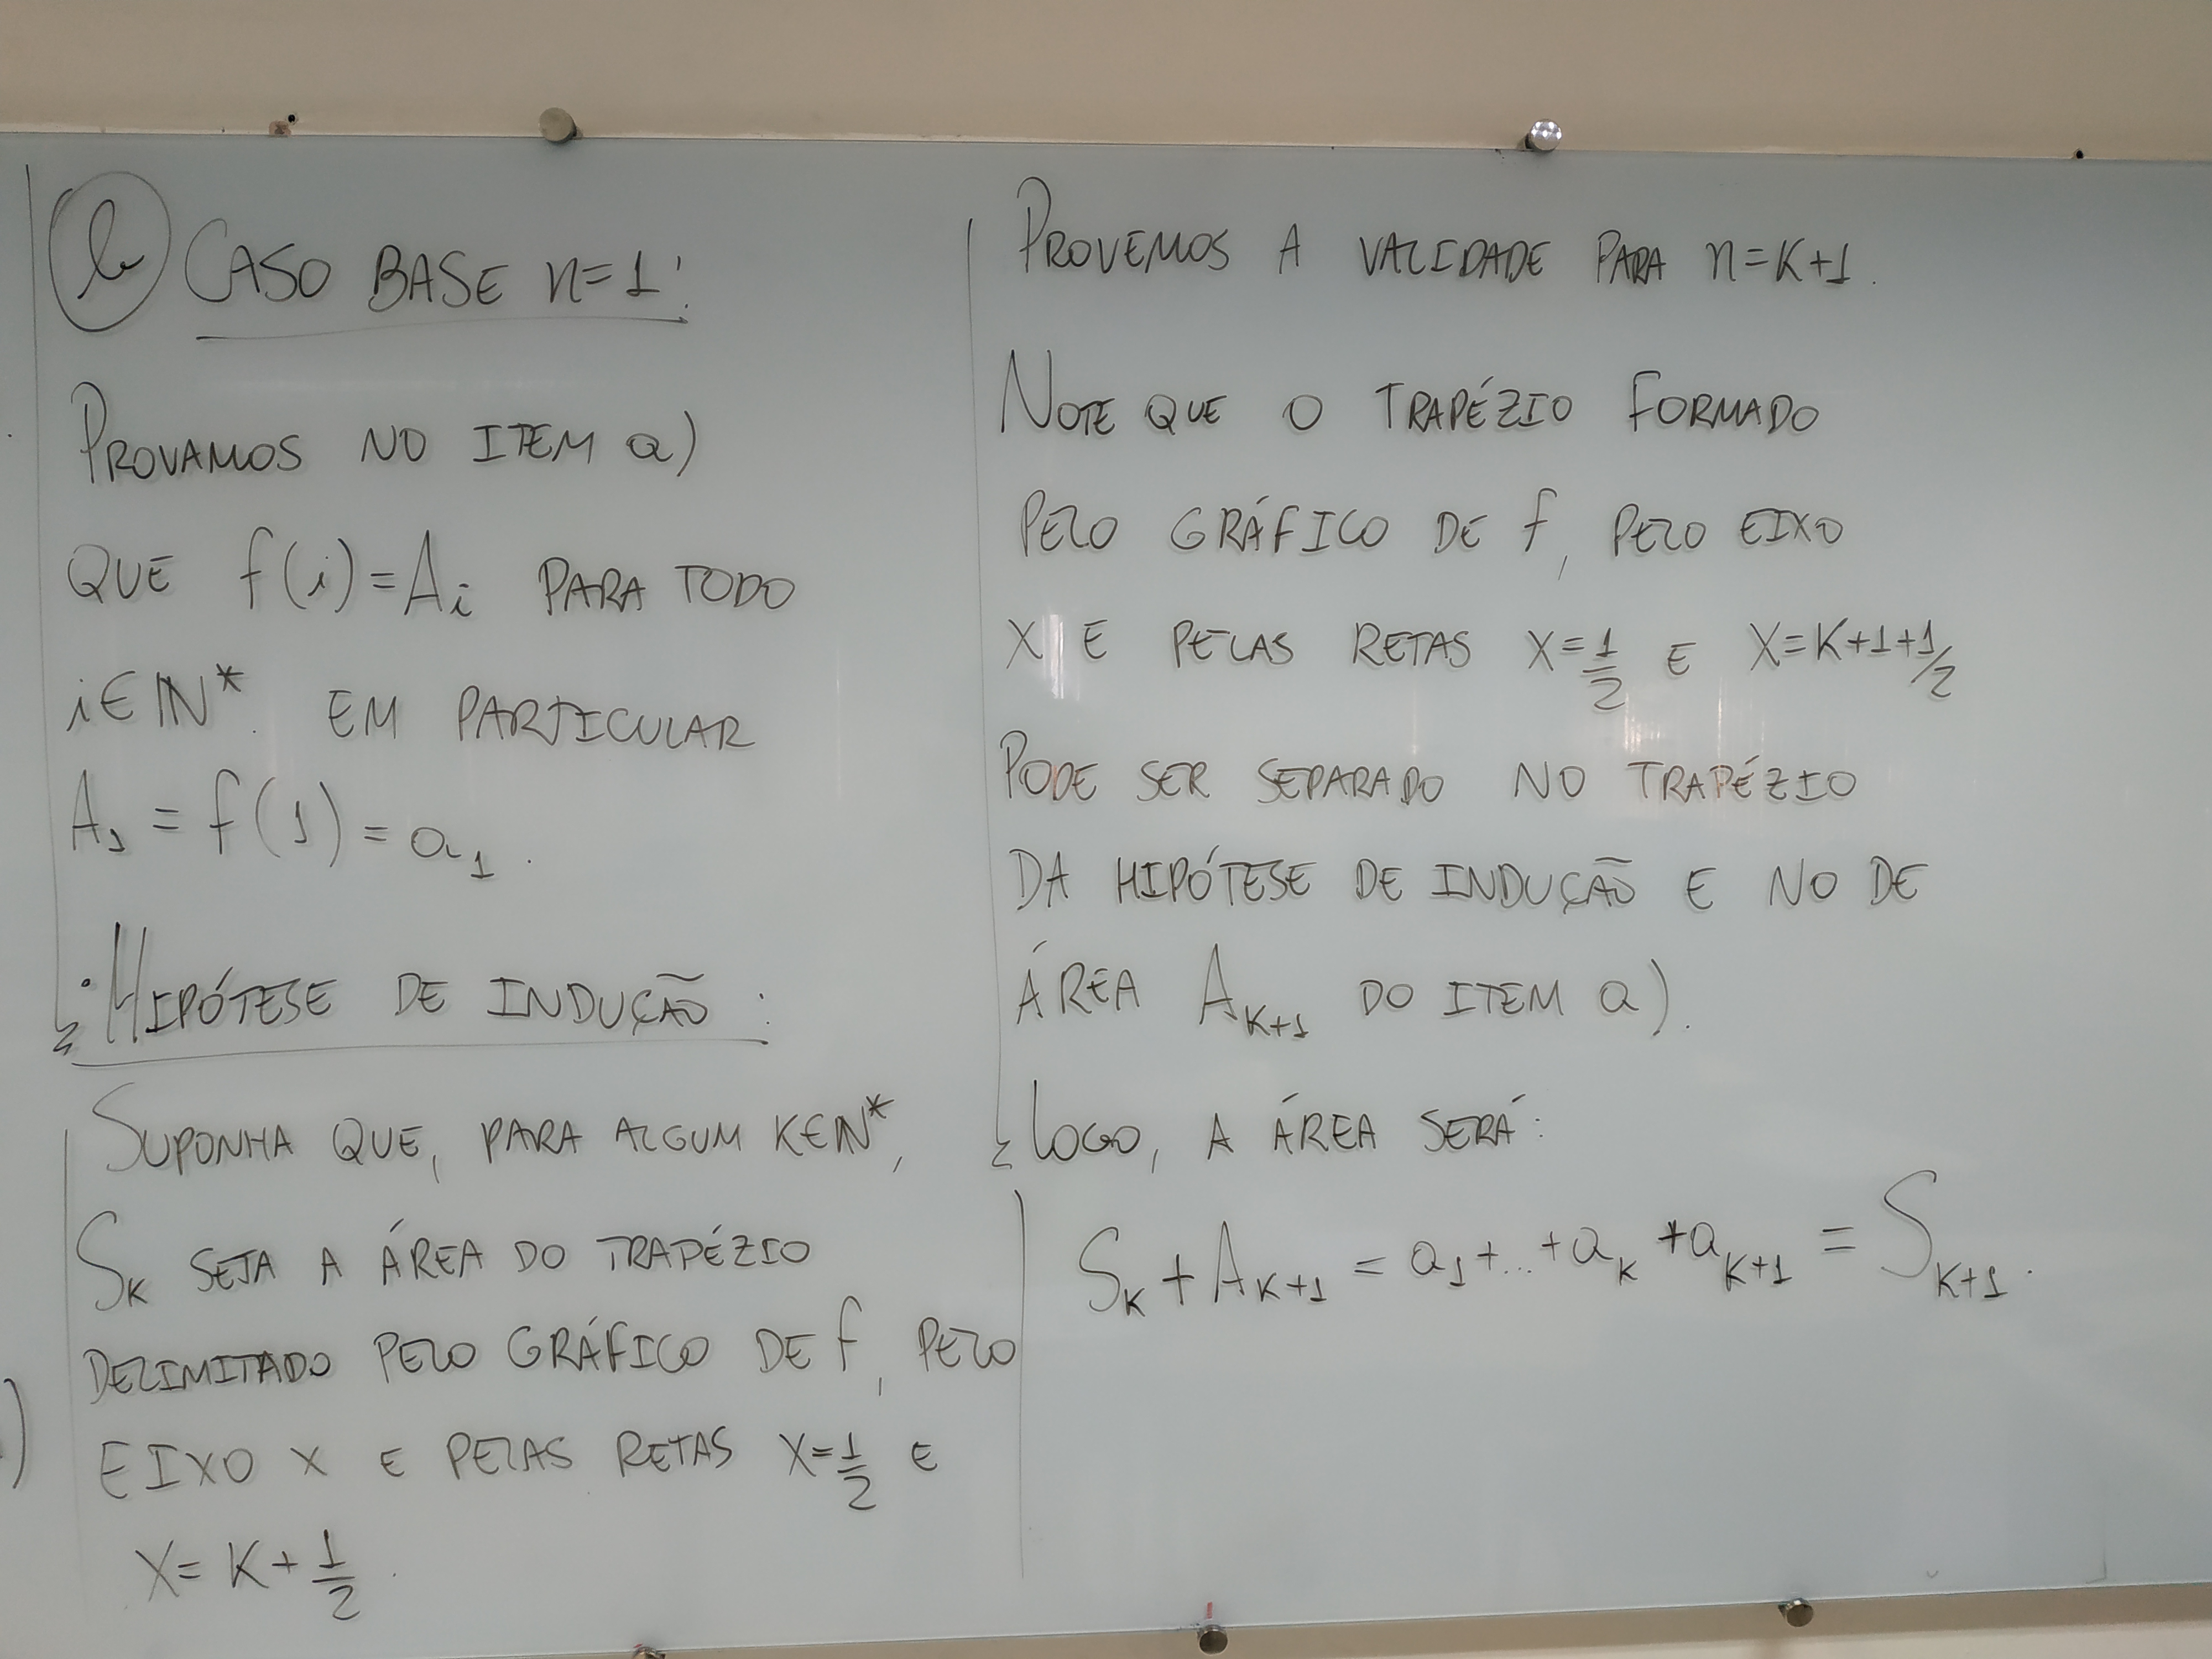 b) CASO BASE n=1:
PROVAMOS NO ITEM a)
QUE f(i)=A_i PARA TODO
i∈ℕ*. EM PARTICULAR
A_1 = f(1) = a_1.
• HIPÓTESE DE INDUÇÃO:
SUPONHA QUE, PARA ALGUM K∈ℕ*,
S_K SEJA A ÁREA DO TRAPÉZIO
DELIMITADO PELO GRÁFICO DE f, PELO
EIXO X E PELAS RETAS X=1/2 E
X=K+1/2.
PROVEMOS A VALIDADE PARA n=K+1.
NOTE QUE O TRAPÉZIO FORMADO
PELO GRÁFICO DE f, PELO EIXO
X E PELAS RETAS X=1/2 E X=K+1+1/2
PODE SER SEPARADO NO TRAPÉZIO
DA HIPÓTESE DE INDUÇÃO E NO DE
ÁREA A_{K+1} DO ITEM a).
LOGO, A ÁREA SERÁ:
S_K + A_{K+1} = a_1+...+a_K+a_{K+1} = S_{K+1}.